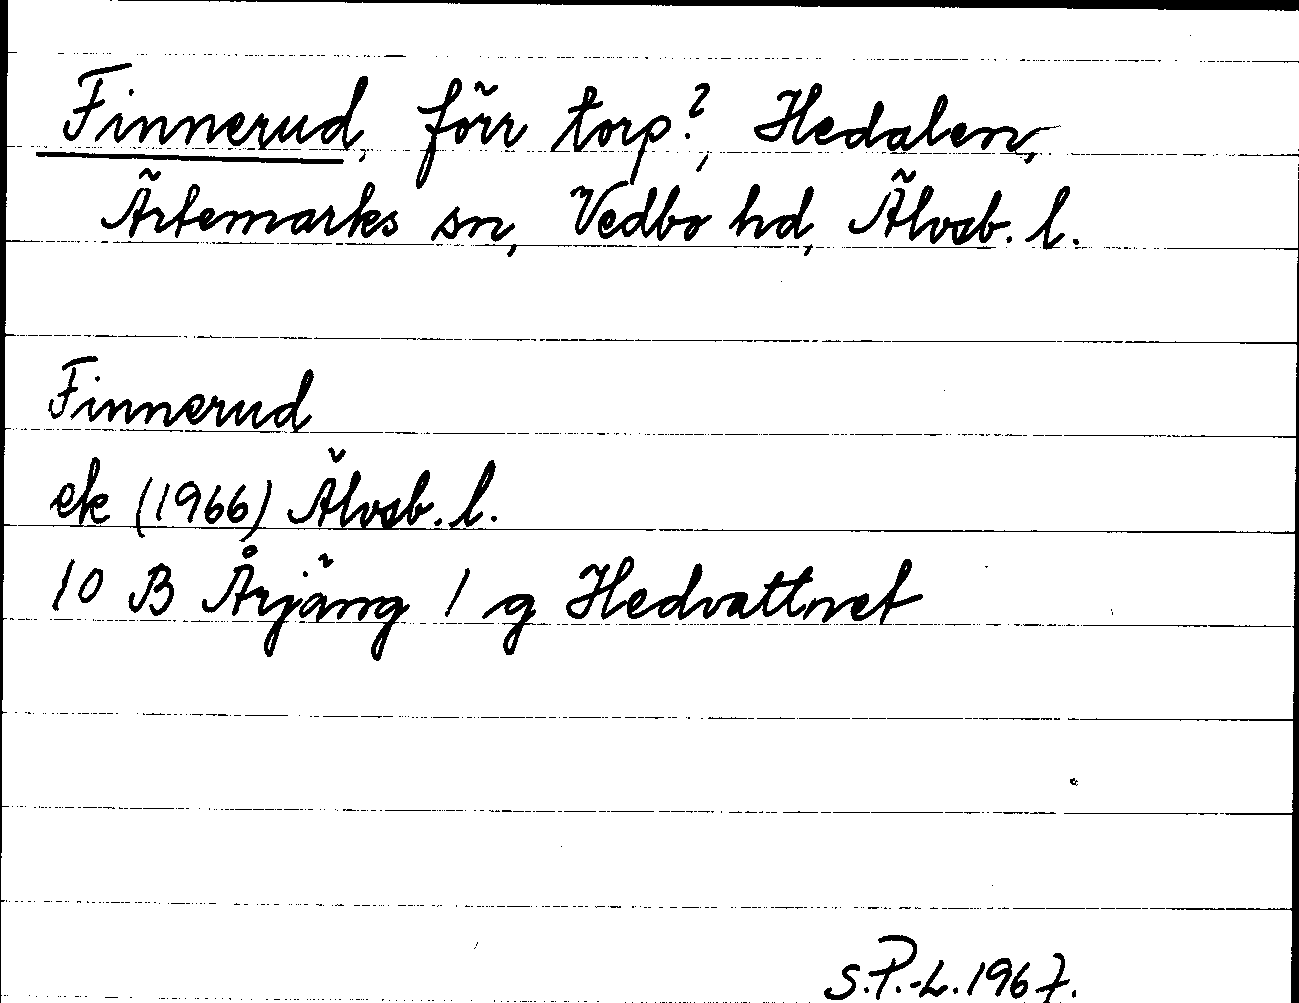 Finnerud, förr torp?, Hedalen,
Ärtemarks sn, Vedbo hd, Älvsb. l.
Finnerud
ek (1966) Älvsb. l.
10 B Årjäng 1 g Hedvattnet
S.P.-L. 1967.